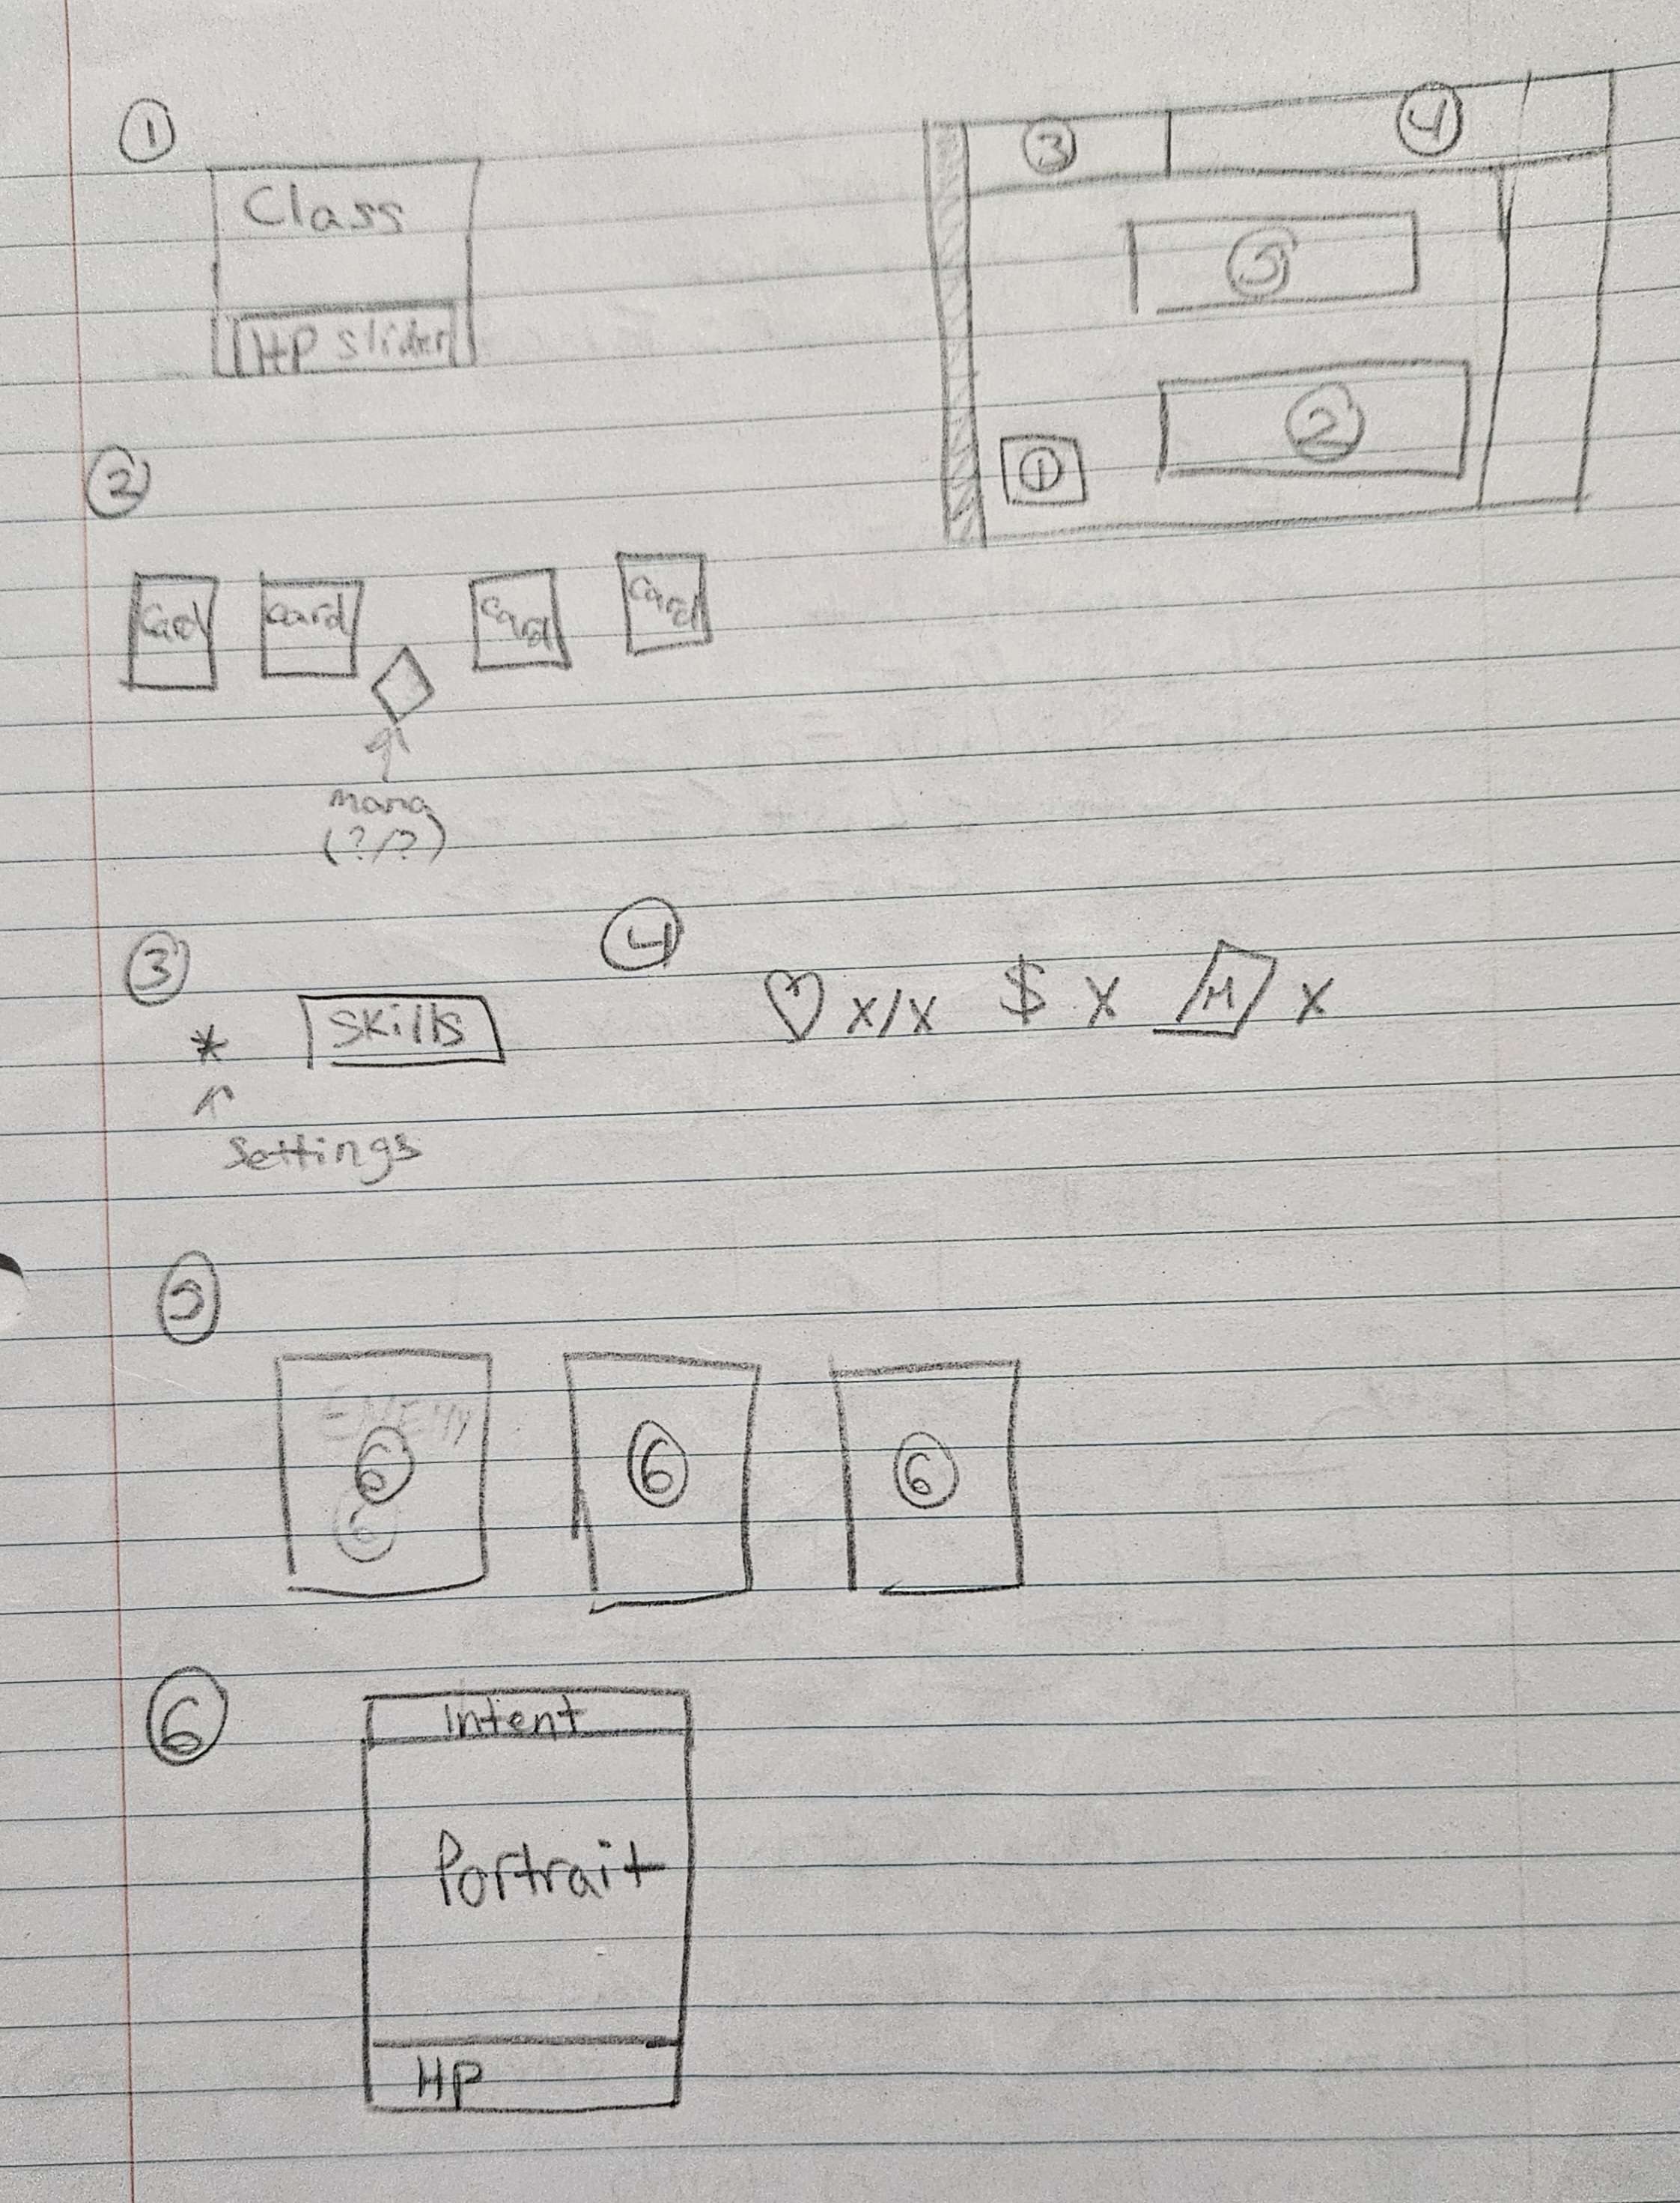 1
Class
HP slider
3
4
5
2
1
2
Card
card
card
card
Mana
(?/?)
3
*
Skills
Settings
4
♡ x/x $ x M x
5
ENEMY
6
6
6
6
6
Intent
Portrait
HP